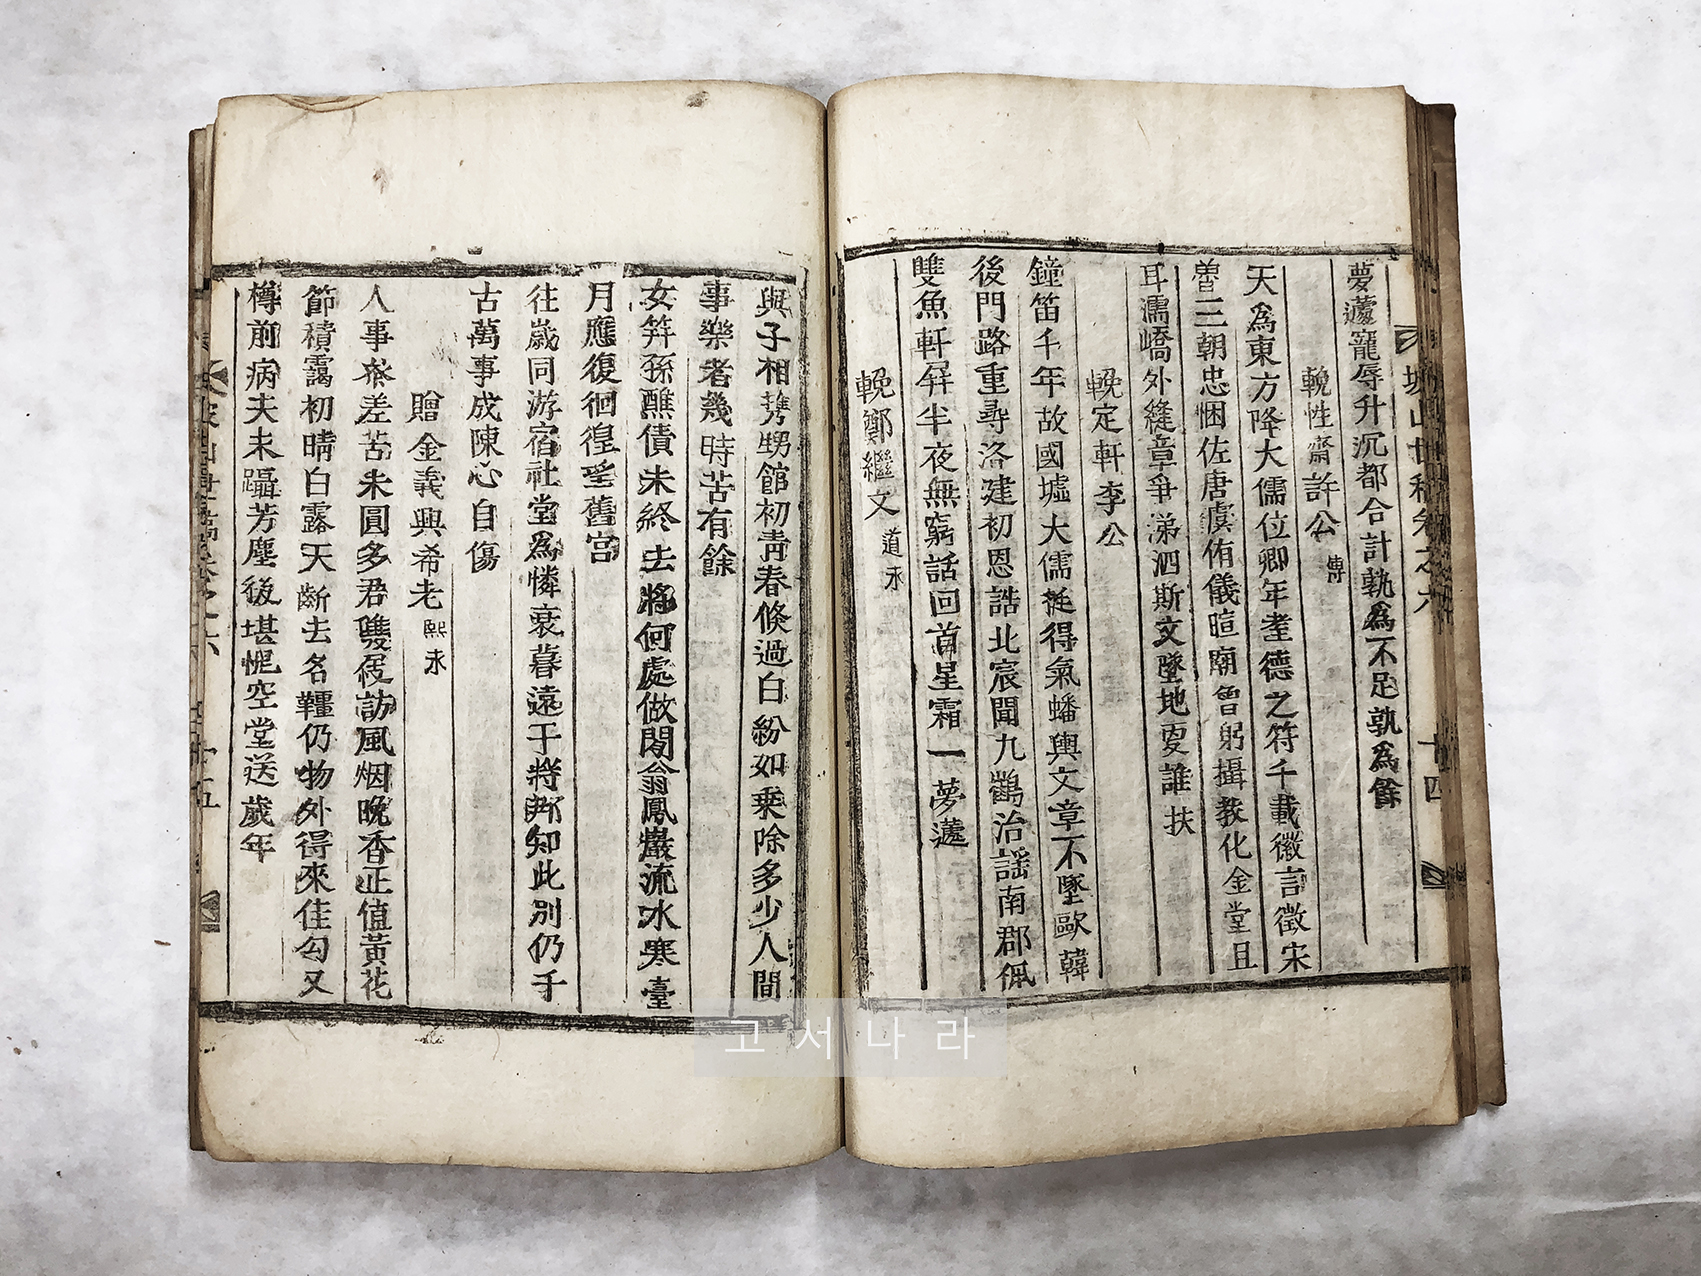 城山世稿卷之六 十四
夢蘧寵辱升沉都合計孰爲不足孰爲餘
輓性齋許公傳
天爲東方降大儒位卿年耋德之符千載微言徵宋
魯三朝忠悃佐唐虞侑儀暄廟曾躬攝敎化金堂且
耳濡嶠外縫章爭涕泗斯文墜地更誰扶
輓定軒李公
鐘笛千年故國墟大儒挺得氣蟠輿文章不墜歐韓
後門路重尋洛建初恩誥北宸聞九鶴治謠南郡佩
雙魚軒屛半夜無窮話回首星霜一夢蘧
輓鄭繼文道永
與子相携甥館初靑春倏過白紛如乘除多少人間
事樂者幾時苦有餘
女笄孫醮債未終去將何處做閒翁鳳巖流水寒臺
月應復徊徨望舊宮
往歲同游宿社堂爲憐衰暮遠于將那知此別仍千
古萬事成陳心自傷
贈金義興希老熙永
人事參差苦未圓多君雙屐訪風烟晩香正值黃花
節積靄初晴白露天斷去名韁仍物外得來佳句又
樽前病夫未躡芳塵後堪悒空堂送歲年
城山世稿卷之六 十五
고서나라